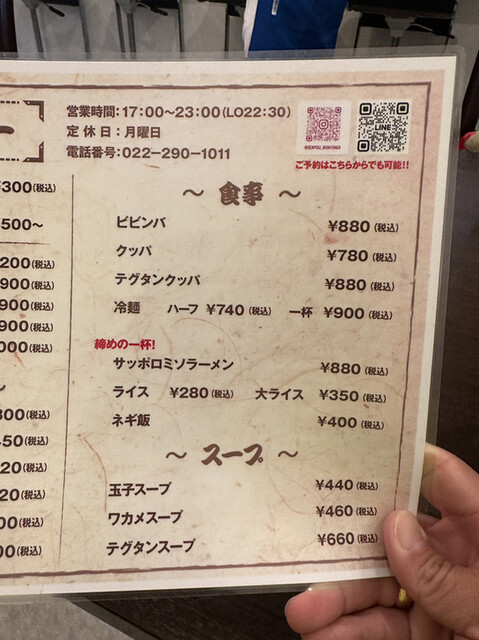 営業時間：17:00〜23:00(LO22:30)
定休日：月曜日
電話番号：022-290-1011
LINE
ご予約はこちらからでも可能!!
〜 食事 〜
ビビンバ ¥880(税込)
クッパ ¥780(税込)
テグタンクッパ ¥880(税込)
冷麺 ハーフ ¥740(税込) 一杯 ¥900(税込)
締めの一杯!
サッポロミソラーメン ¥880(税込)
ライス ¥280(税込) 大ライス ¥350(税込)
ネギ飯 ¥400(税込)
〜 スープ 〜
玉子スープ ¥440(税込)
ワカメスープ ¥460(税込)
テグタンスープ ¥660(税込)
300(税込)
500〜
200(税込)
900(税込)
900(税込)
900(税込)
000(税込)
(税込)
50(税込)
20(税込)
20(税込)
00(税込)
00(税込)